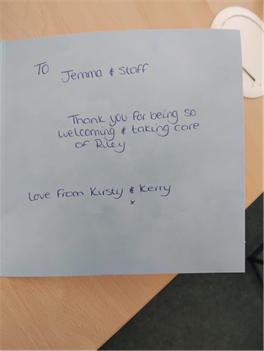 To
Jemma & Staff
Thank you for being so
welcoming & taking care
of Riley
Love from Kirsty & Kerry
x